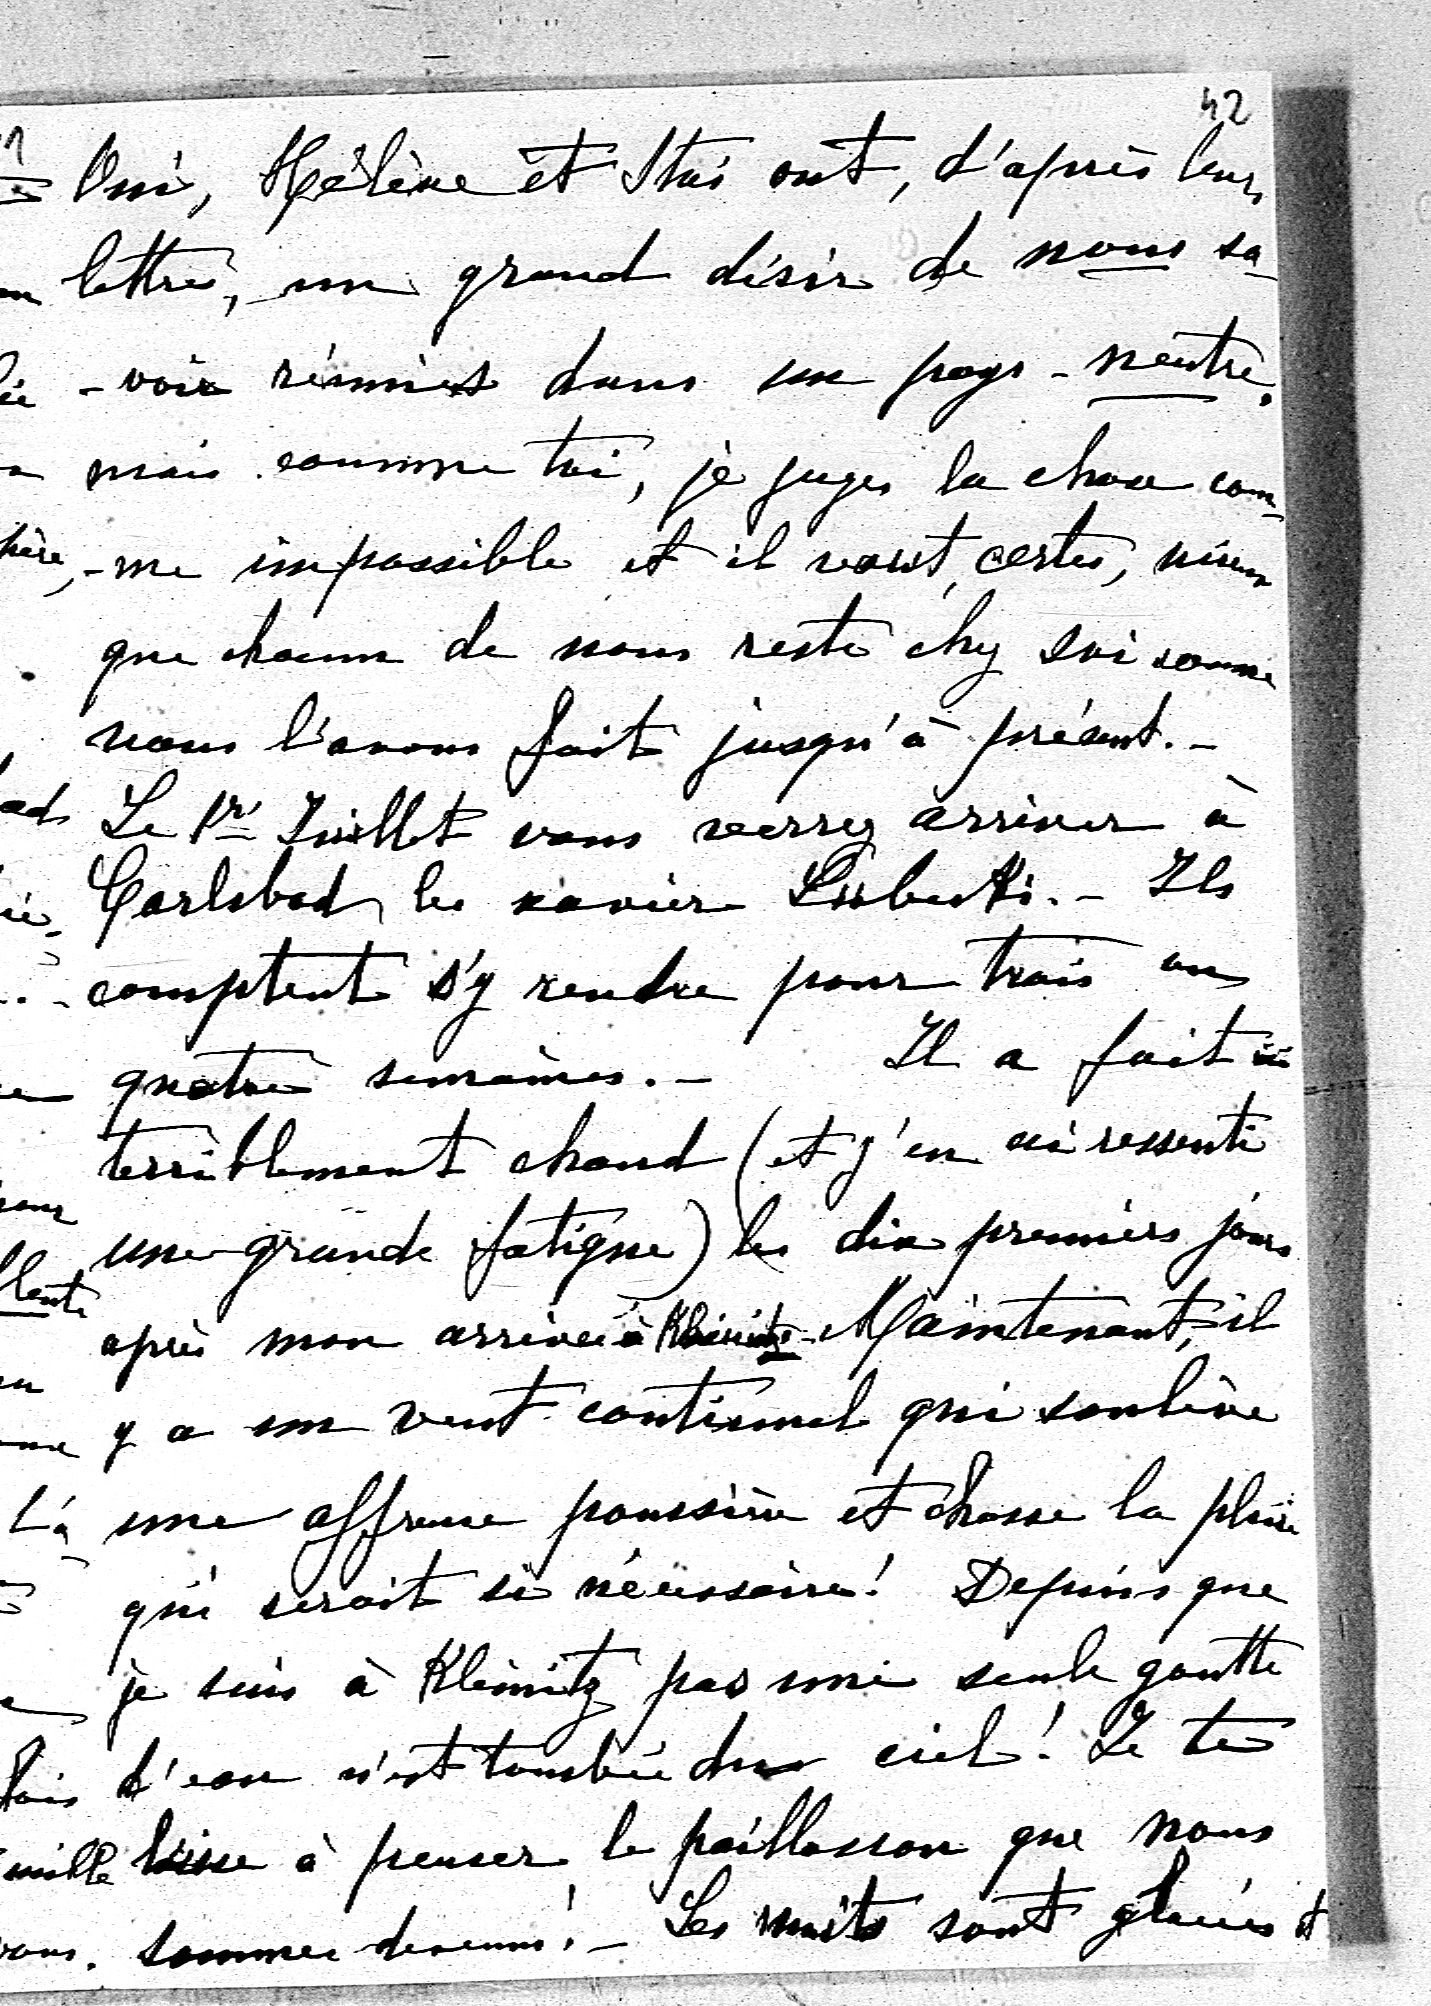 42
Oui, Hélène et Stas ont, d'après leurs
lettres, un grand désir de nous sa-
-voir réunies dans un pays-neutre.
mais comme toi, je juges la chose com-
-me impossible et il vaut, certes, mieux
que chacun de nous reste chez soi comme
nous l'avons fait jusqu'à présent.-
Le 1er Juillet vous verrez arriver à
Carlsbad les Xavier -. Ils
comptent s'y rendre pour trois ou
quatre semaines.- Il a fait
terriblement chaud (et j'en ai ressenti
une grande fatigue) les dix premiers jours
après mon arrivée à Kleinitz.- Maintenant, il
y a un vent continuel qui soulève
une affreuse poussière et chasse la pluie
qui serait si nécessaire! Depuis que
je suis à Kleinitz pas une seule goutte
d'eau n'est tombée du ciel! Je te
laisse à penser le paillasson que nous
sommes devenus!- Les nuits sont glacées et